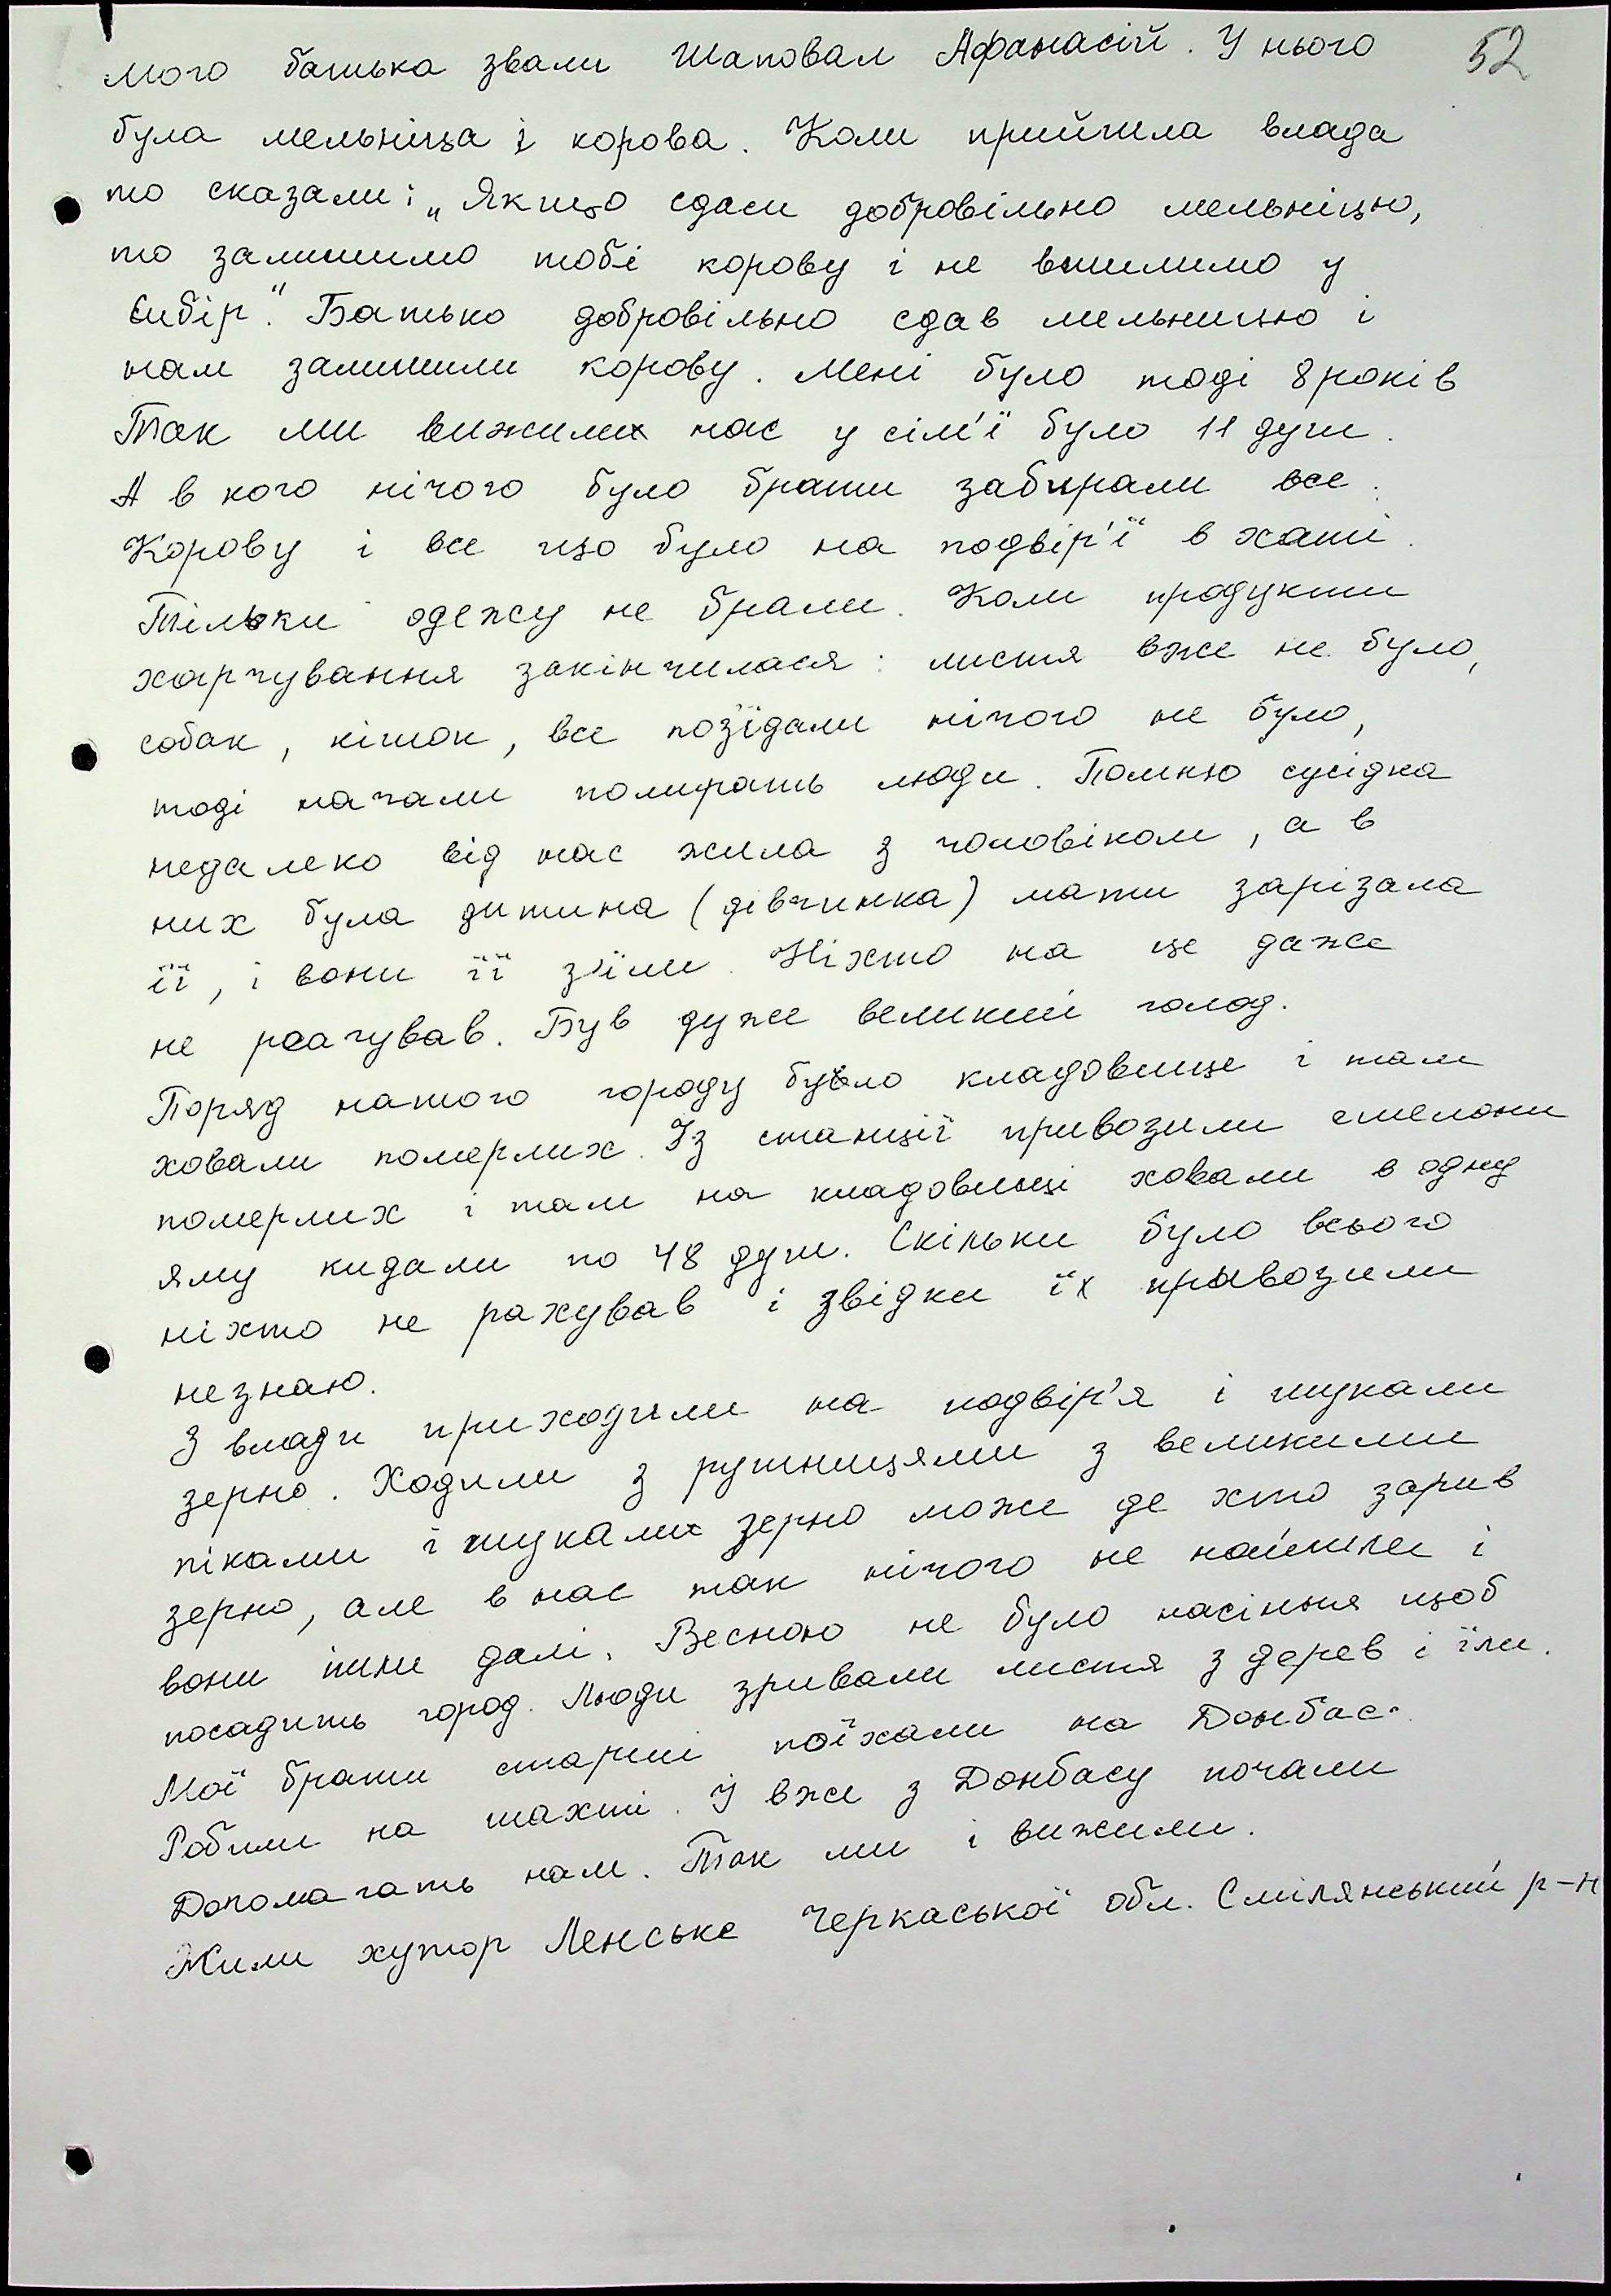 52
Мого батька звали Шаповал Афанасій. У нього
була мельніца і корова. Коли прийшла влада
то сказали: „Якщо сдаси добровільно мельніцю,
то залишимо тобі корову і не вишлимо у
Сибір." Батько добровільно сдав мельницю і
нам залишили корову. Мені було тоді 8 років
Так ми вижили нас у сім'ї було 11 душ.
А в кого нічого було брати забирали все.
Корову і все що було на подвір'ї в хаті.
Тільки одежу не брали. Коли продукти
харчування закінчилася: листя вже не було,
собак, кішок, все поз'їдали нічого не було,
тоді начали помирать люди. Помню сусідка
недалеко від нас жила з чоловіком, а в
них була дитина (дівчинка) мати зарізала
її, і вони її з'їли. Ніхто на це даже
не реагував. Був дуже великий голод.
Поряд нашого городу було кладовище і там
ховали померлих. Із станції привозили емелони
померлих і там на кладовищі ховали в одну
яму кидали по 48 душ. Скільки було всього
ніхто не рахував і звідки їх привозили
незнаю.
З влади приходили на подвір'я і шукали
зерно. Ходили з рушницями з великими
піками і шукали зерно може де хто зарив
зерно, але в нас так нічого не найшли і
вони пішли далі. Весною не було насіння щоб
посадить город. Люди зривали листя з дерев і їли.
Мої брати старші поїхали на Донбас.
Робили на шахті. І вже з Донбасу почали
Допомагать нам. Так ми і вижили.
Жили хутор Ленське Черкаської обл. Смілянський р-н